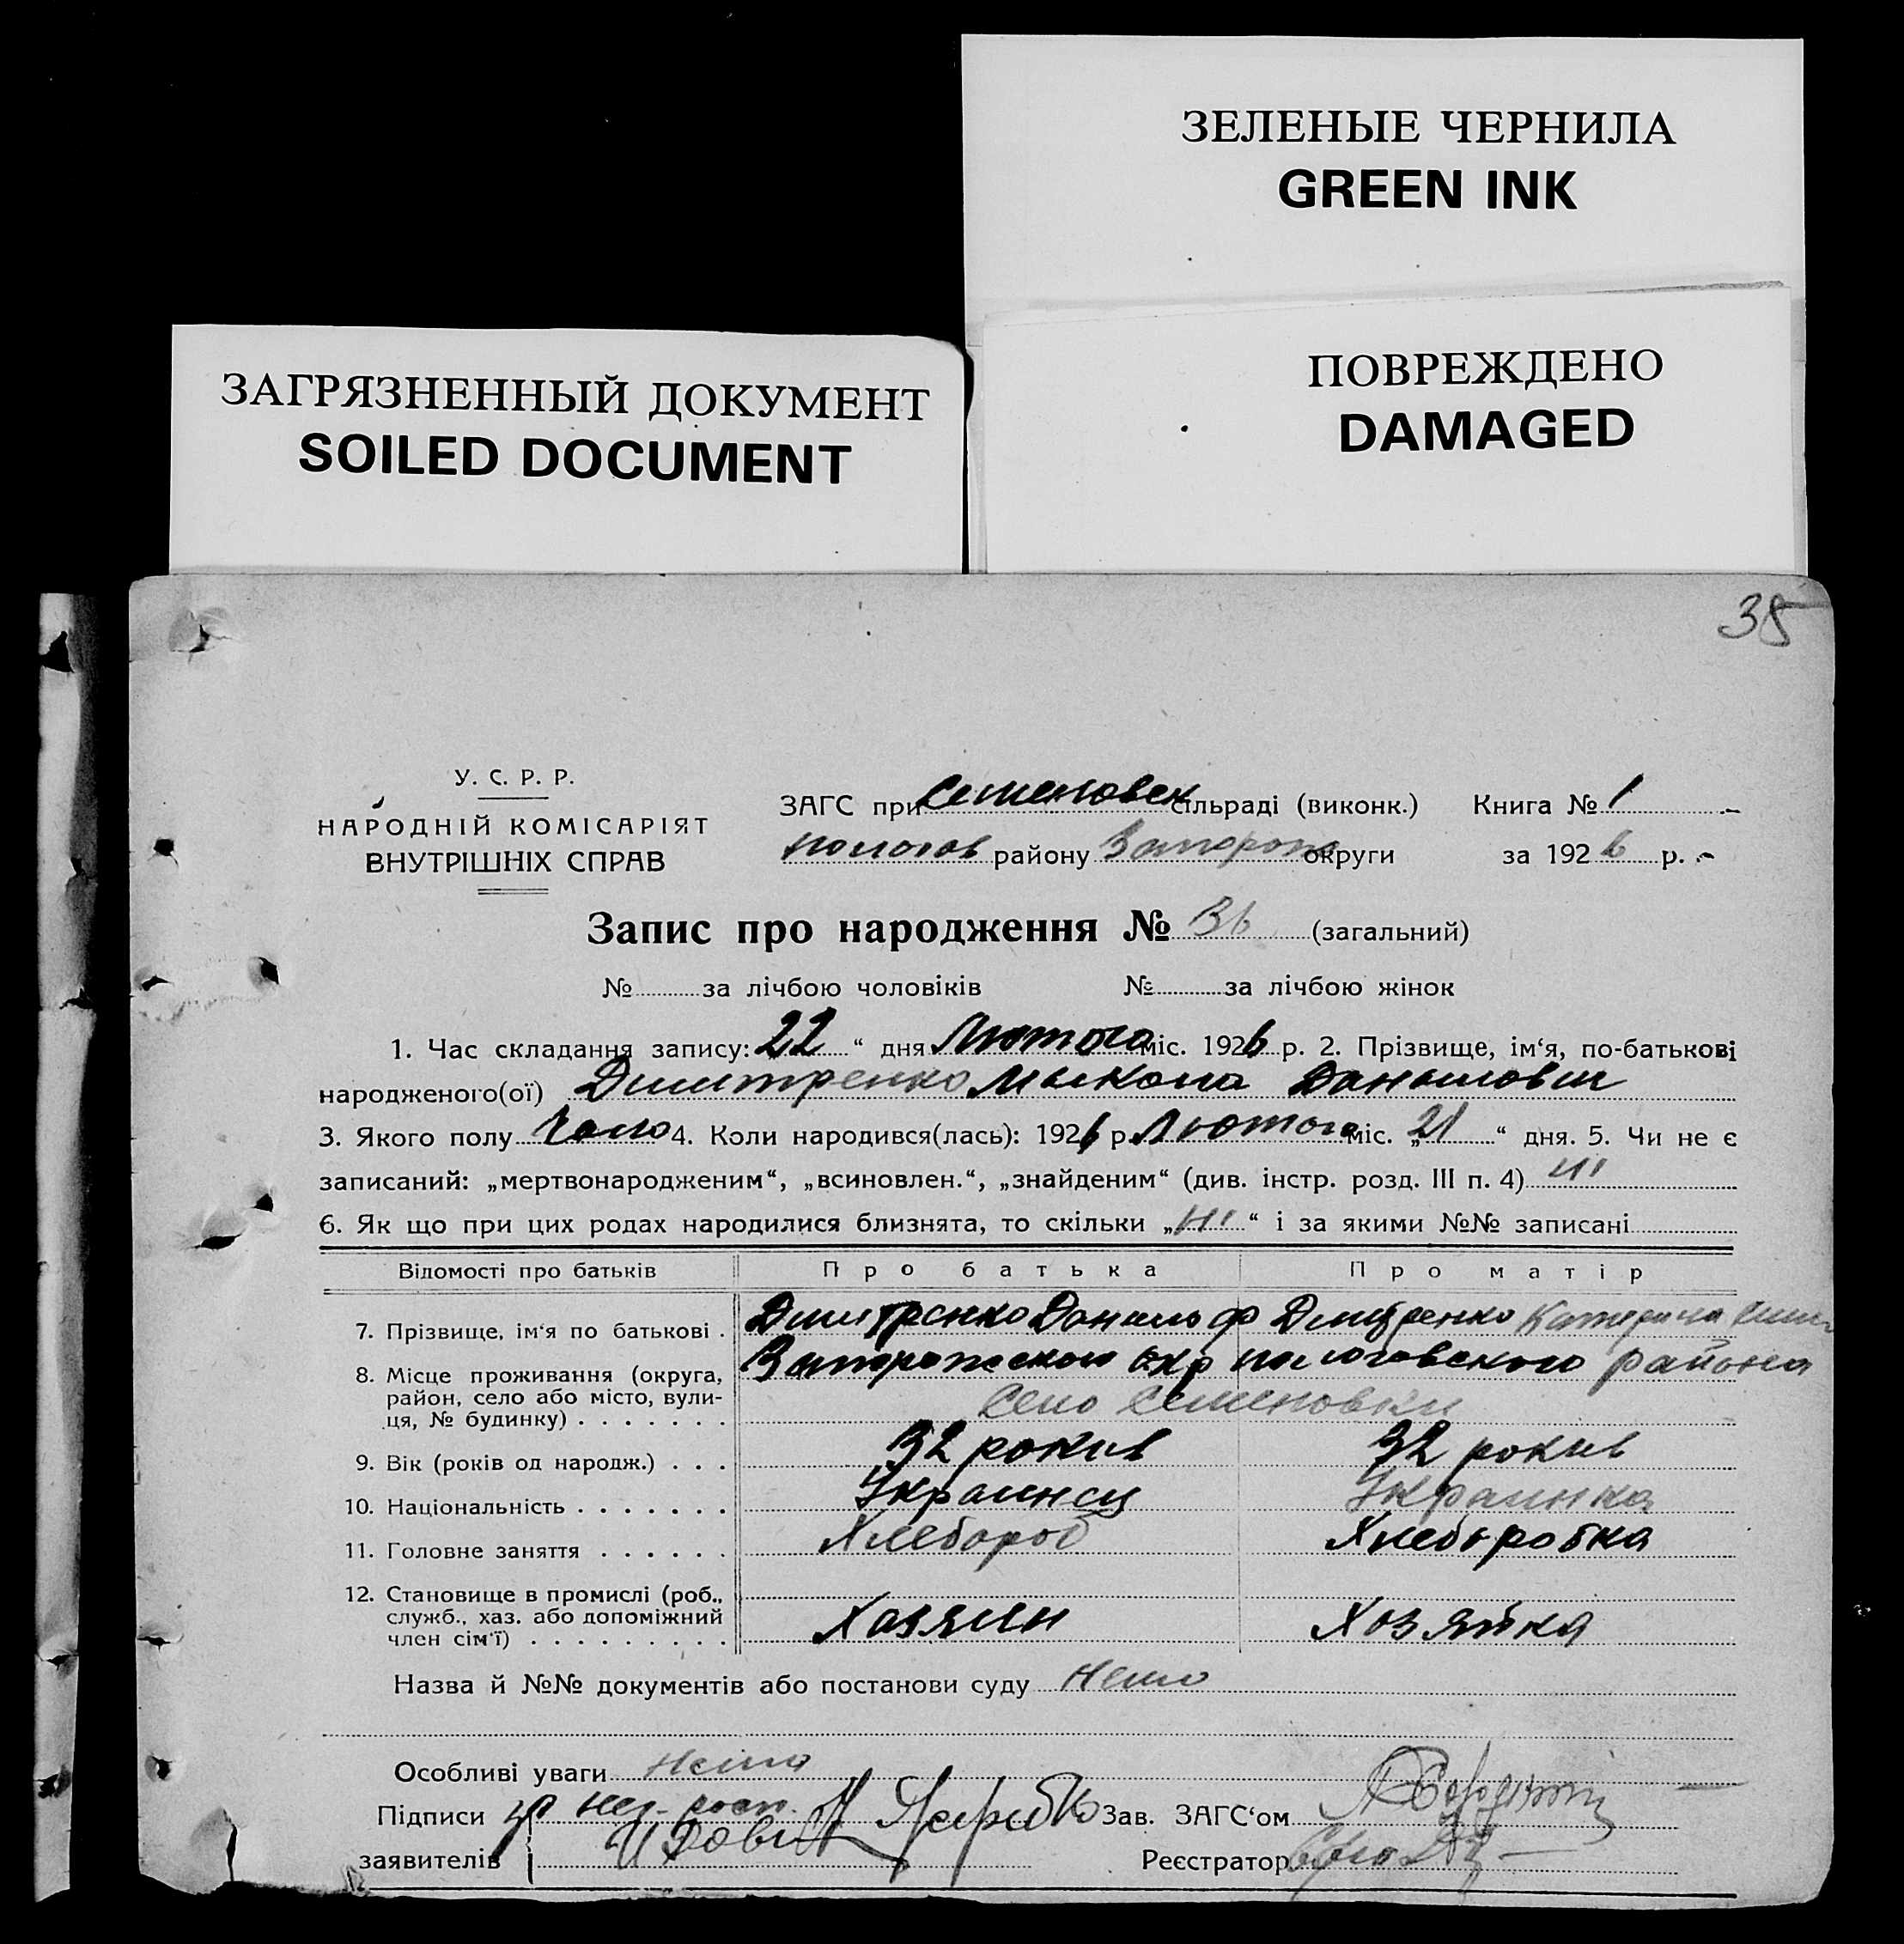 ЗЕЛЕНЫЕ ЧЕРНИЛА
GREEN INK
ЗАГРЯЗНЕННЫЙ ДОКУМЕНТ
SOILED DOCUMENT
ПОВРЕЖДЕНО
DAMAGED
38
У. С. Р. Р.
НАРОДНІЙ КОМІСАРІЯТ
ВНУТРІШНІХ СПРАВ
ЗАГС при Семеновск сільраді (виконк.) Книга № 1
пологов району Запорож округи за 1926 р.
Запис про народження № 36 (загальний)
№ за лічбою чоловіків № за лічбою жінок
1. Час складання запису: 22 “ дня Лютого міс. 1926 р. 2. Прізвище, ім‘я, по-батькові
народженого(ої) Дмитренко Мыкола Данылович
3. Якого полу Чоло 4. Коли народився(лась): 1926 р. Лютого міс. „21“ дня. 5. Чи не є
записаний: „мертвонародженим“, „всиновлен.“, „знайденим“ (див. інстр. розд. III п. 4) ні
6. Як що при цих родах народилися близнята, то скільки „ні“ і за якими №№ записані
Відомості про батьків Про батька Про матір
7. Прізвище, ім‘я по батькові . Дмитренко Данило ф Дмитренко Катерина
8. Місце проживання (округа, Запорожского окр пологовского района
район, село або місто, вули-
ця, № будинку) . . . . . . . село Семеновки
9. Вік (років од народж.) . . . 32 рокив 32 рокив
10. Національність . . . . . . . Украинец Украинка
11. Головне заняття . . . . . . Хлебороб Хлеборобка
12. Становище в промислі (роб.,
служб., хаз. або допоміжний
член сім‘ї) . . . . . . . . . Хазяин Хозяйка
Назва й №№ документів або постанови суду Нема
Особливі уваги Нема
Підписи за Зав. ЗАГС‘ом
заявителів Реєстратор